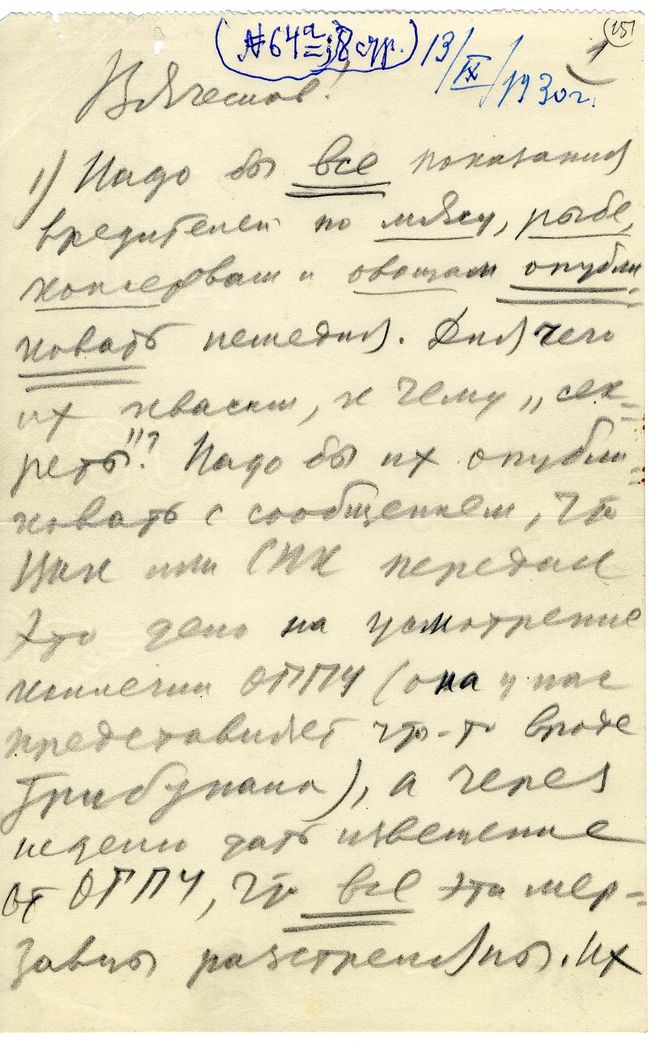 (№64а; 8 стр.) 13/IX/1930г. 1
Вячеслав!
1) Надо бы все показания
вредителей по мясу, рыбе,
консервам и овощам опубли-
ковать немедля. Для чего
их квасим, к чему „сек-
реты"? Надо бы их опубли-
ковать с сообщением, что
ЦИК или СНК передали
это дело на усмотрение
коллегии ОГПУ (она у нас
представляет что-то вроде
трибунала), а через
неделю дать извещение
от ОГПУ, что все эти мер-
завцы расстреляны. Их